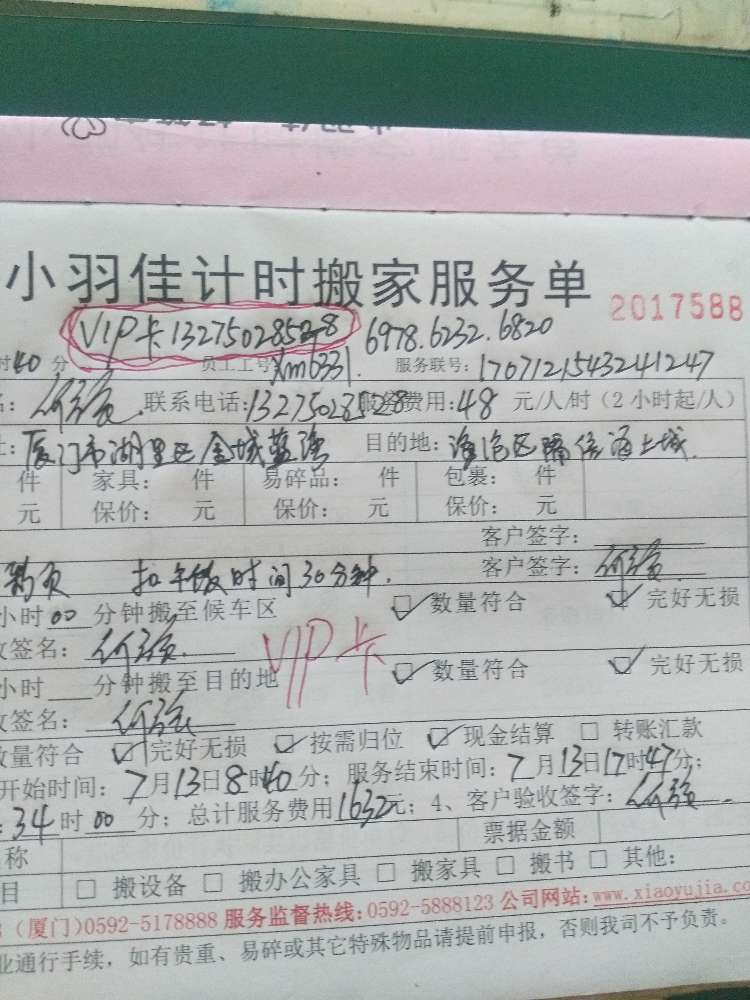 小羽佳计时搬家服务单 2017588
VIP卡13275028528 6978.6232.6820
时40分 员工工号xm6331. 服务联号:17071215432241247
联系电话:13275028528服务费用:48 元/人/时（2小时起/人）
厦门市湖里区金域蓝湾 目的地:海沧区
件 家具: 件 易碎品: 件 包裹: 件
元 保价: 元 保价: 元 保价: 元
客户签字:
扣午饭时间30分钟. 客户签字:
小时00分钟搬至候车区 数量符合 完好无损
收签名: VIP卡
小时 分钟搬至目的地 数量符合 完好无损
收签名:
数量符合 完好无损 按需归位 现金结算 转账汇款
开始时间: 7月13日8时40分; 服务结束时间: 7月13日17时47分;
: 34时00分; 总计服务费用1632元; 4、客户验收签字:
名称 票据金额
项目 搬设备 搬办公家具 搬家具 搬书 其他:
（厦门)0592-5178888 服务监督热线:0592-5888123 公司网站:www.xiaoyujia.co
业通行手续，如有贵重、易碎或其它特殊物品请提前申报，否则我司不予负责。